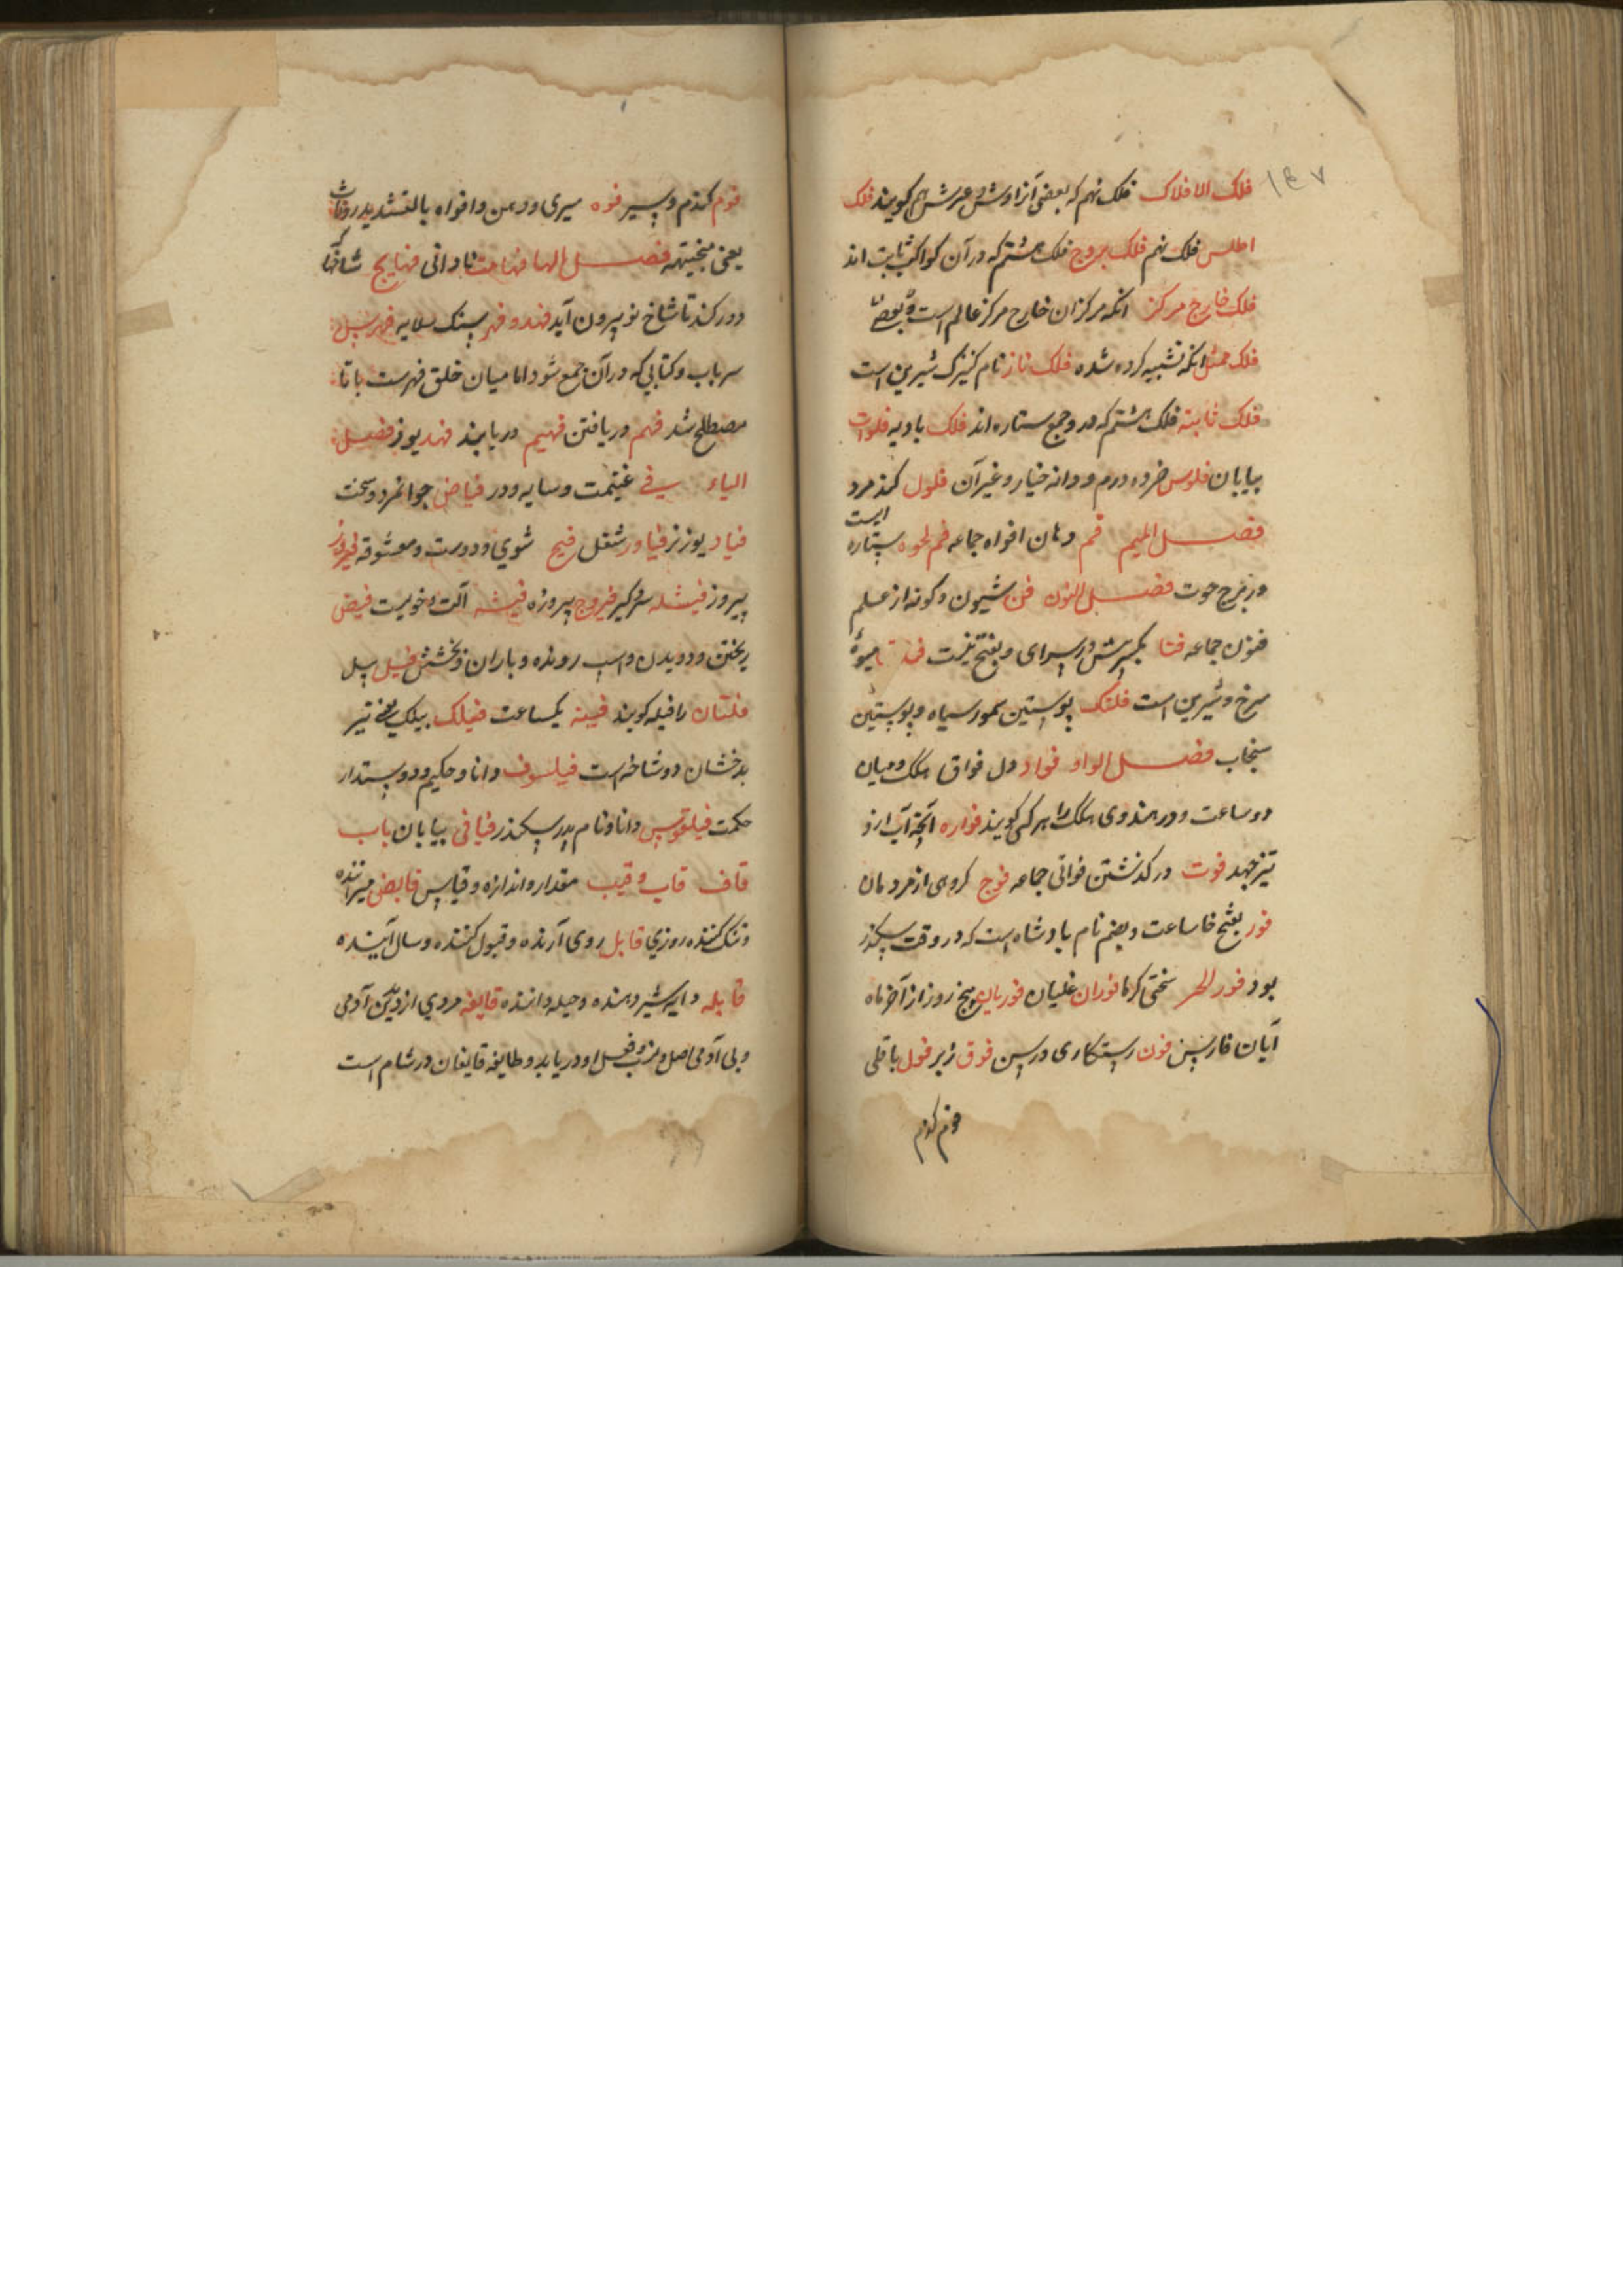 ۱۴۷
فلک الافلاک فلک نهم که بعضی آنرا وش و عرش هم کویند فلک
اطلس فلک نهم فلک بروج فلک هشتم که در آن کواکب ثابت اند
فلک خارج مرکز انکه مرکز ان خارج مرکز عالم است
فلک ممثل انکه تشبیه کرده شده فلک ناز نام کنیزک شیرین است
فلک ثابته فلک هشتم که درو جمع ستاره اند فلک بادیه فلوات
بیابان فلوس خرده درم و دانه خیار و غیر آن فلول کند مرد
فصل المیم فم دهان افواه جماعه فم الحوه ستاره ایست
در برج حوت فصل النون فن شیون و کونه از علم
فنون جماعه فنا بکسر پیش در سرای و بفتح نیست میوهٔ
سرخ و شیرین است فلنک پوستین سمور سیاه و پوستین
سنجاب فصل الواو فواد دل فواق هلک و میان
دو ساعت و در هندوی هلک را هرکی کویند فواره آنچه آب از و
تیز جهد فوت در کذشتن فواتی جماعه فوج کروهی از مردمان
فور بفتح فا ساعت و بضم نام بادشاه است که در وقت سکندر
بود فور الحر سختی کرما فوران غلیان پنج روز از آخر ماه
آبان فارسی فون رستکاری ورسن فوق زبر فول باقلی
فوم کندم
فوم کندم و سیر فوه سیری و دهن و افواه بالتشدید
یعنی فصل الها فهاهت نادانی
دور کند تا شاخ نو بیرون آید فهد و فهر سنک سلایه
سر باب و کتابی که در آن جمع شود اما میان خلق فهرست با تا
مصطلح شد فهم دریافتن فهیم دریابند فهد یوز فصل
الیاء فی غنیمت و سایه و در فیاض جوانمرد و سخت
فیاد یوز نر فیاور شغل فیج شوی و دوست و معشوقه
پیروز فیشله سر کیر فیروج پیروزه فیشه
ریختن و دویدن و اسپ رونده و باران و بخشش فیل پیل
را فیله کویند فینه یکساعت فیلک بیلک یعنی تیر
بدخشان دو شاخه است فیلسوف دانا و حکیم و دوستدار
حکمت فیلقوس دانا و نام پدر سکندر فیافی بیابان باب
قاف قاب و قیب مقدار و اندازه و قیاس قابض میراننده
و تنک کننده روزی قابل روی آرنده و قبول کننده و سال آینده
قابله دایه شیر دهنده و حیله داننده قایفه مردی از دیدن آدمی
و پی آدمی اصل و نسب و فعل او دریابد و طایفه قایفان در شام است